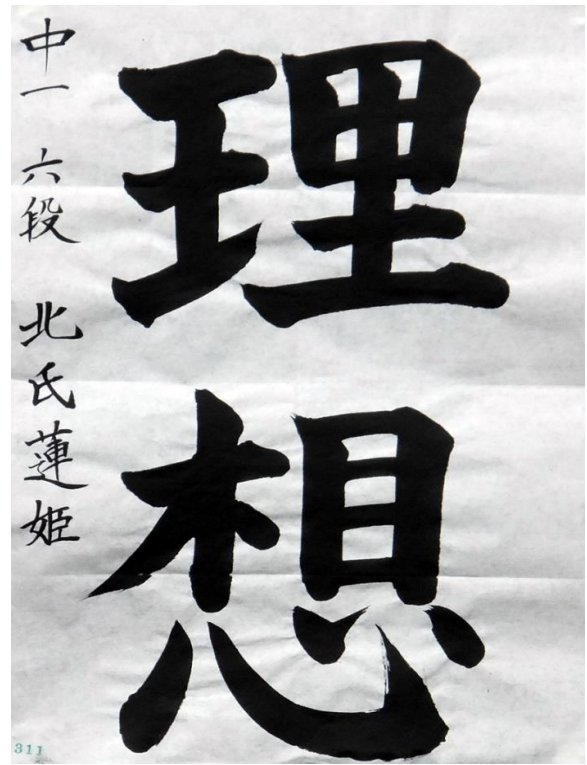 理想
中一 六段 北氏蓮姫
311